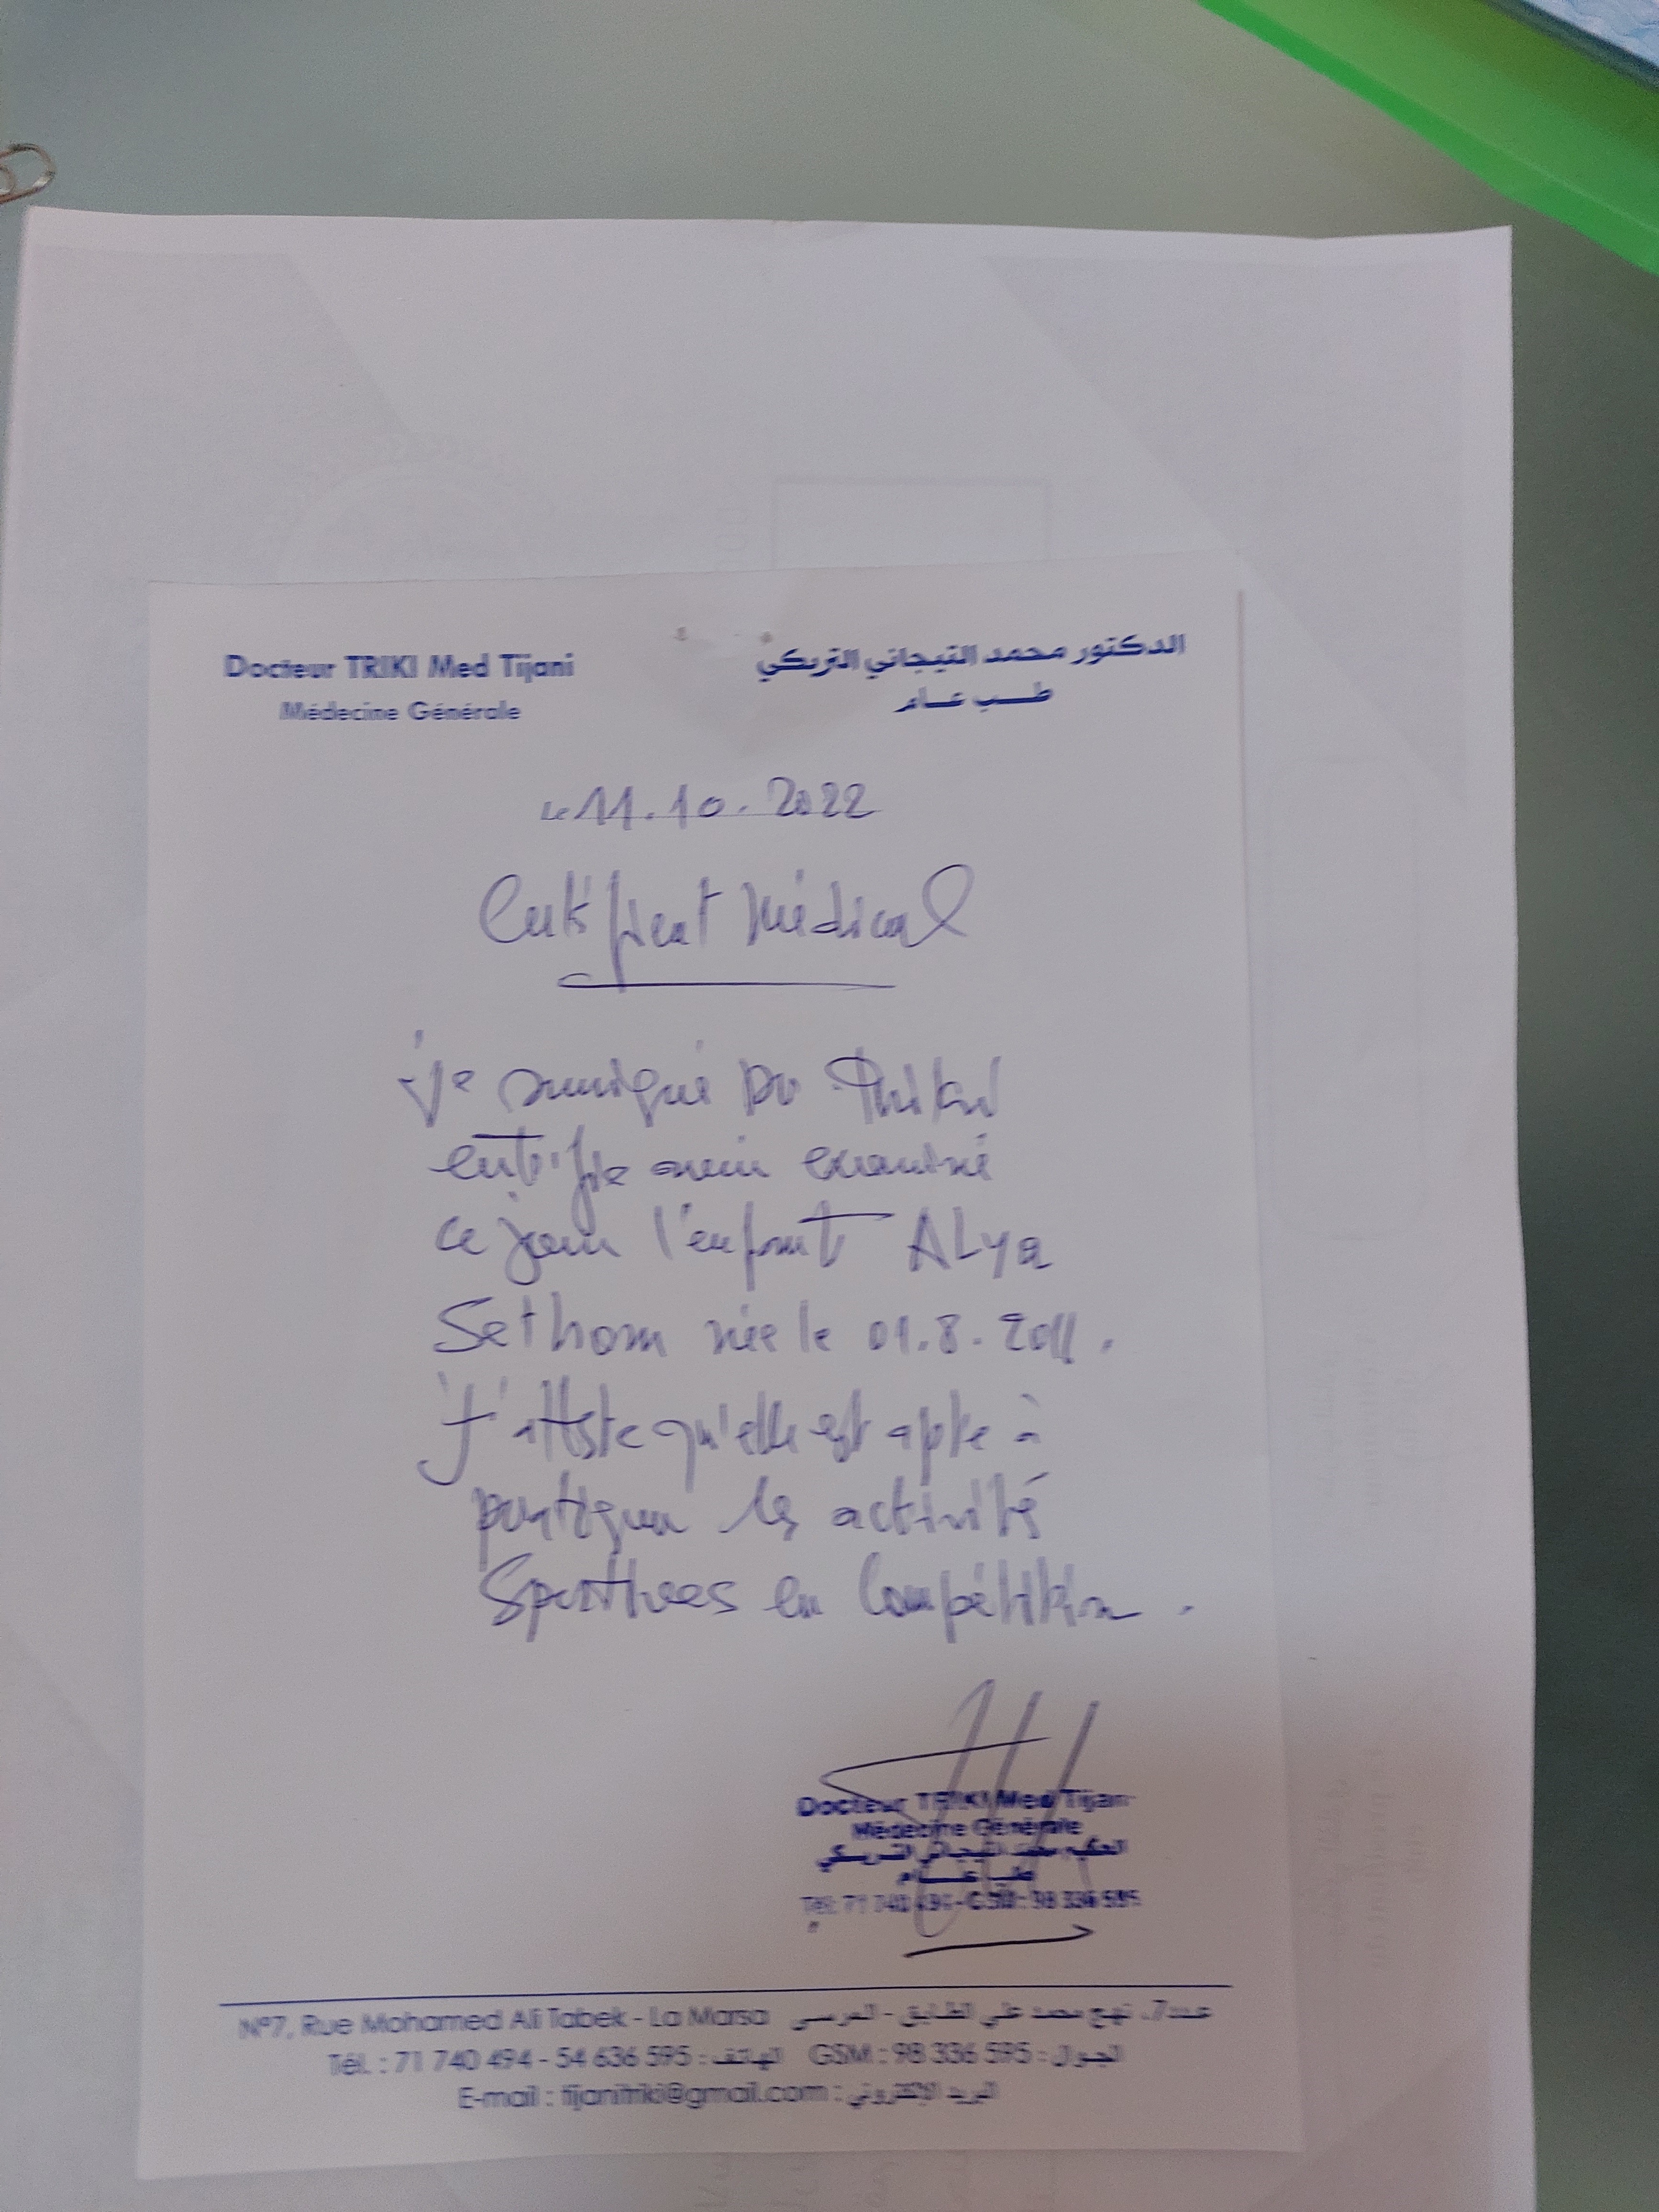 Docteur TRIKI Med Tijani
Médecine Générale
الدكتور محمد التيجاني التريكي
طب عام
Le 11.10.2022
Certificat Médical
Je soussigné Dr Triki
certifie avoir examiné
ce jour l'enfant ALya
Sethom née le 01.8.2011.
J'atteste qu'elle est apte à
pratiquer les activités
Sportives en Compétition.
Docteur TRIKI Med Tijani
Médecine Générale
الحكيم محمد التيجاني التريكي
طب عام
Tél: 71 740 494 - GSM: 98 336 595
N°7, Rue Mohamed Ali Tabek - La Marsa عدد7، نهج محمد علي الطابق - المرسى
Tél. : 71 740 494 - 54 636 595 : الهاتف GSM : 98 336 595 : الجوال
E-mail : tijanitriki@gmail.com : البريد الإلكتروني